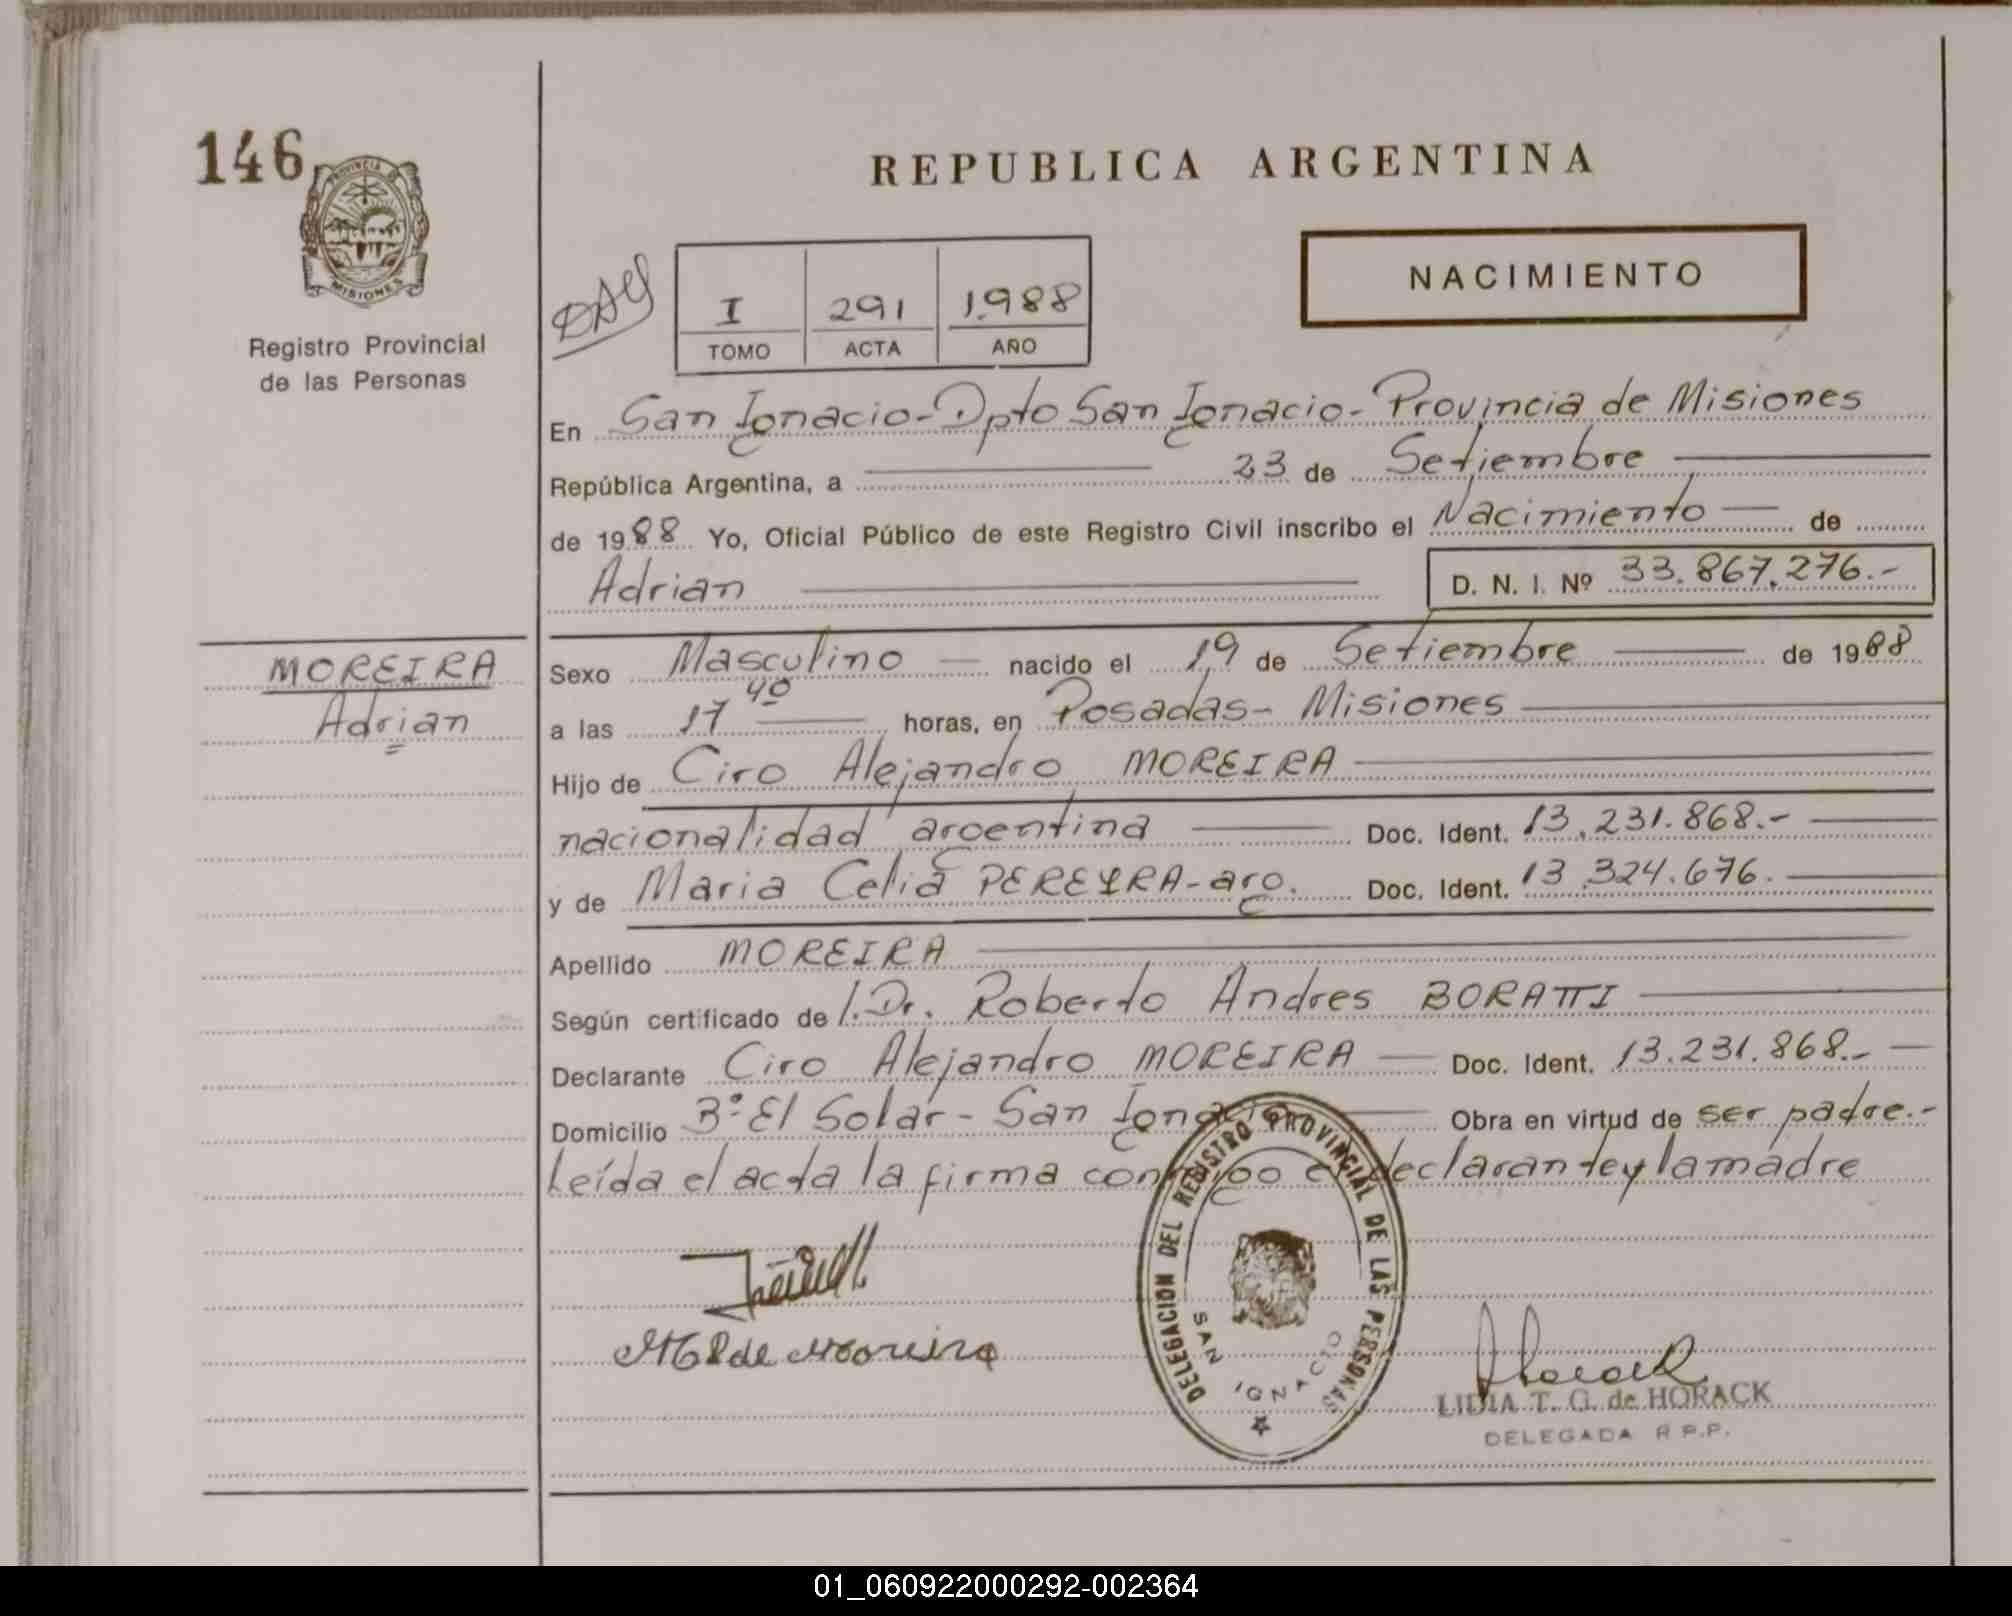 146
PROVINCIA DE
MISIONES
Registro Provincial
de las Personas
REPUBLICA ARGENTINA
NACIMIENTO
I 291 1.988
TOMO ACTA AÑO
En San Ignacio-Dpto San Ignacio-Provincia de Misiones
República Argentina, a 23 de Setiembre
de 1988 Yo, Oficial Público de este Registro Civil inscribo el Nacimiento de
Adrian D. N. I. Nº 33.867.276.-
MOREIRA
Adrian
Sexo Masculino nacido el 19 de Setiembre de 1988
a las 17 40 horas, en Posadas- Misiones
Hijo de Ciro Alejandro MOREIRA
nacionalidad argentina Doc. Ident. 13.231.868.-
y de Maria Celia PEREYRA-arg. Doc. Ident. 13.324.676.
Apellido MOREIRA
Según certificado de l. Dr. Roberto Andres BORATTI
Declarante Ciro Alejandro MOREIRA Doc. Ident. 13.231.868.-
Domicilio Bº El Solar - San Ignacio Obra en virtud de ser padre.-
Leída el acta la firma conmigo el declarante y la madre
DELEGACION DEL REGISTRO PROVINCIAL DE LAS PERSONAS
SAN IGNACIO
de Moreira
LIDIA T. G. de HORACK
DELEGADA R.P.P.
01_060922000292-002364